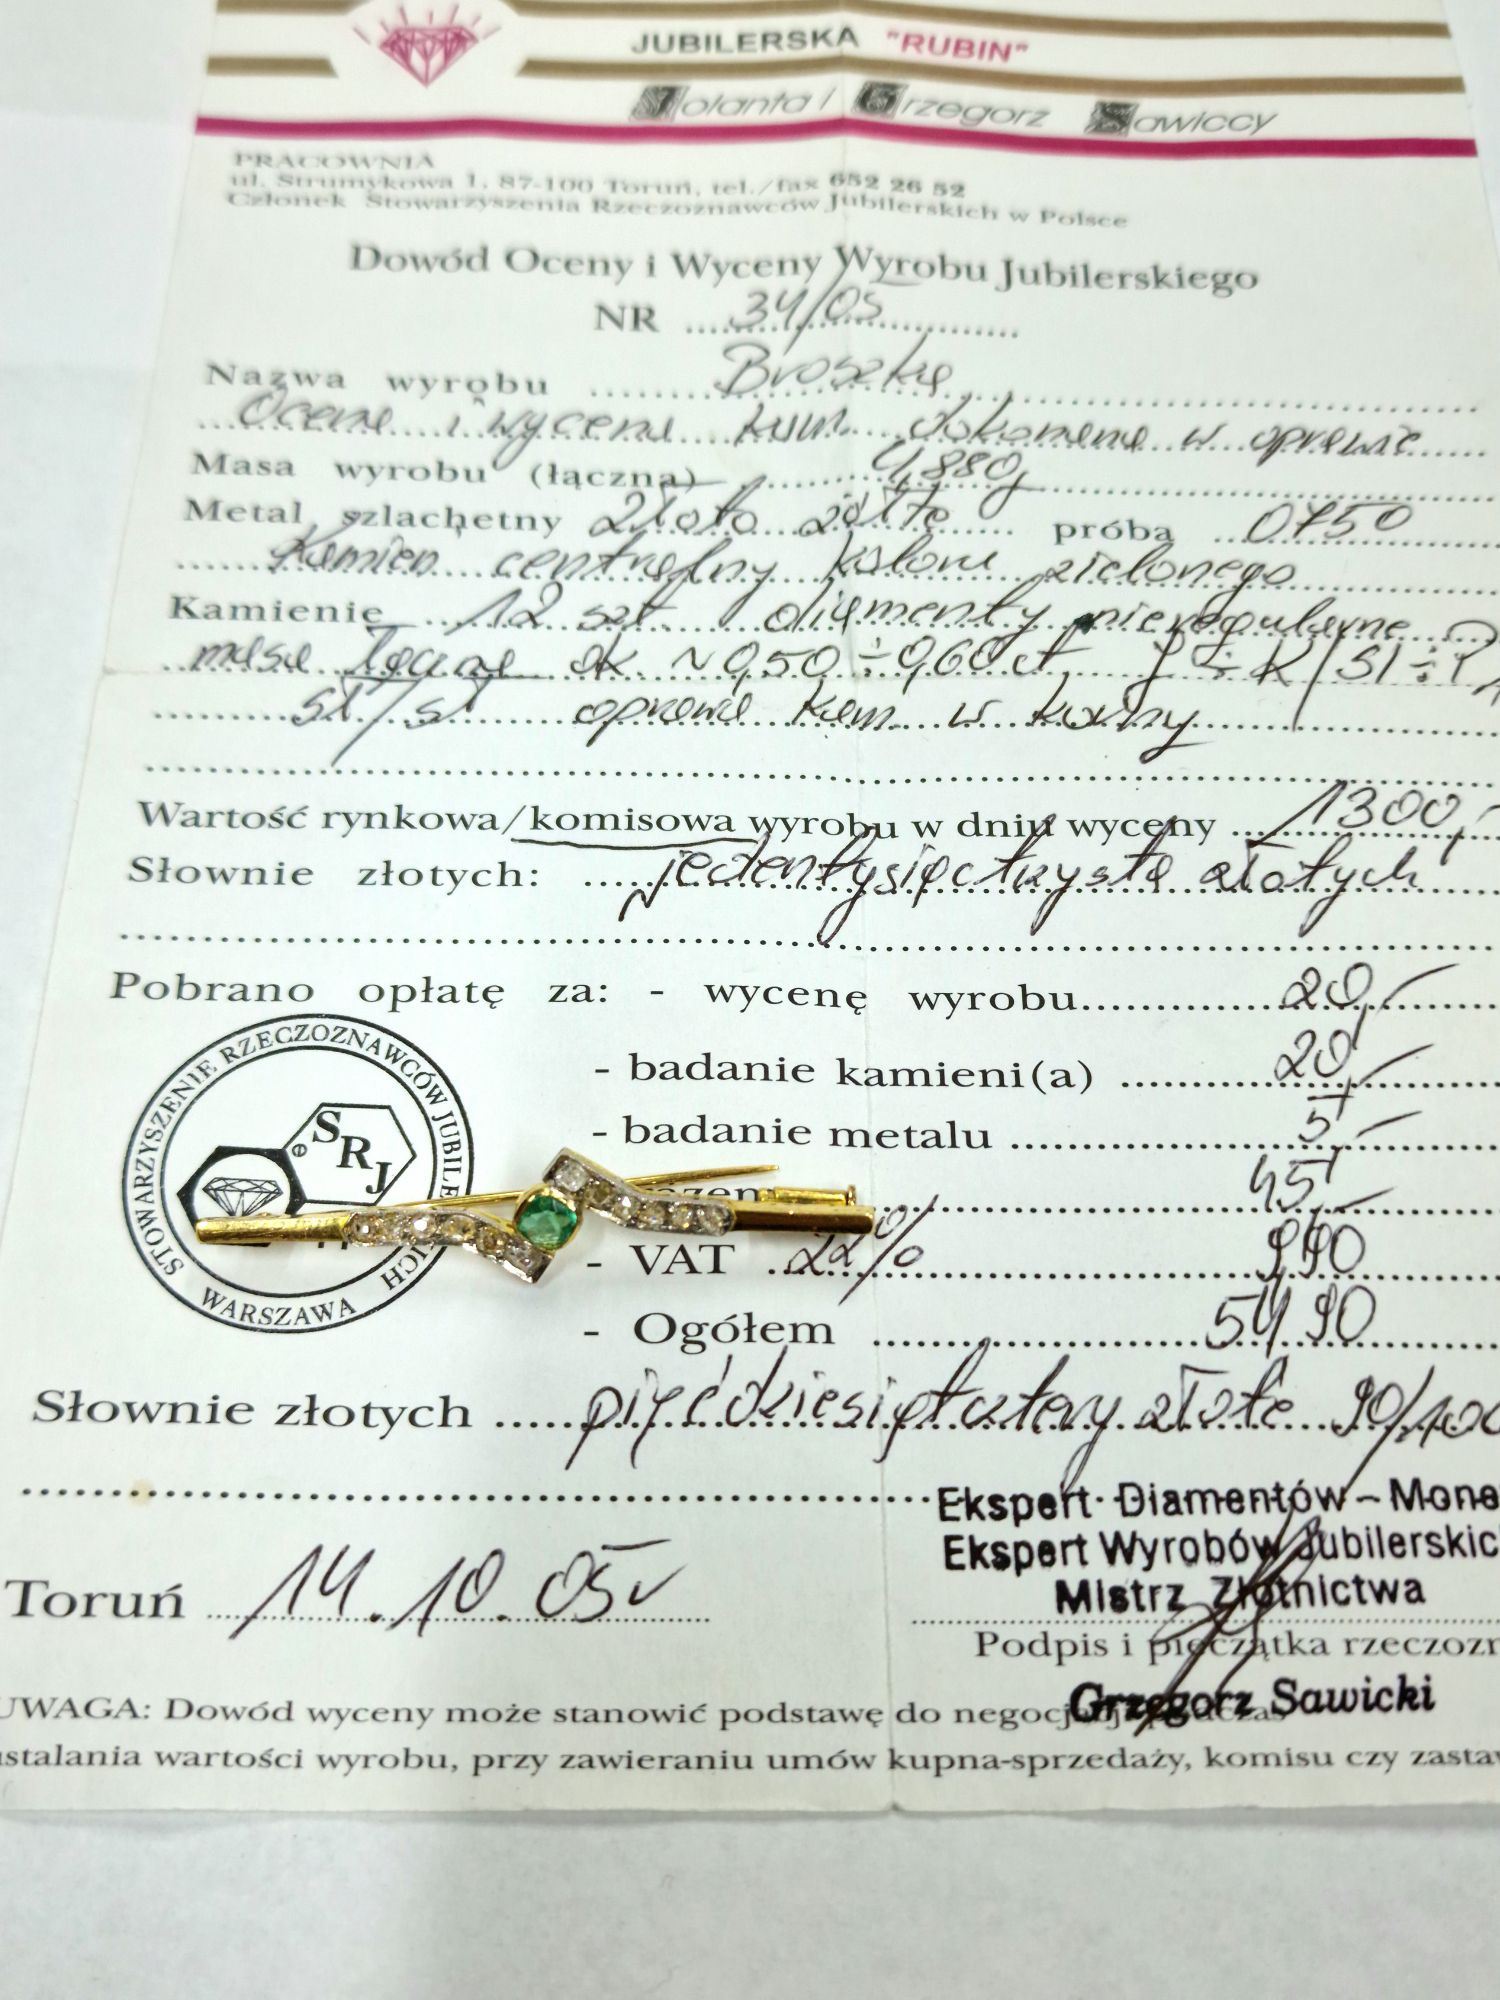 JUBILERSKA "RUBIN"
Jolanta i Grzegorz Sawiccy
PRACOWNIA
ul. Strumykowa 1, 87-100 Toruń, tel./fax 652 26 52
Członek Stowarzyszenia Rzeczoznawców Jubilerskich w Polsce
Dowód Oceny i Wyceny Wyrobu Jubilerskiego
NR 34/05
Nazwa wyrobu Broszka
Ocena i wycena kam. dokonana w oprawie
Masa wyrobu (łączna) 4,880g
Metal szlachetny złoto żółte próba 0,750
Kamień centralny koloru zielonego
Kamienie 12 szt diamenty nieregularne
masa łączna ok ~0,50÷0,60ct J÷K/SI÷P
st/st oprawa kam w karny
Wartość rynkowa/komisowa wyrobu w dniu wyceny 1300,-
Słownie złotych: jedentysiąctrzysta złotych
Pobrano opłatę za: - wycenę wyrobu 20,-
- badanie kamieni(a) 20,-
- badanie metalu 5,-
45,-
- VAT 22% 9,90
- Ogółem 54,90
Słownie złotych pięćdziesiątcztery złote 90/100
STOWARZYSZENIE RZECZOZNAWCÓW JUBILE ICH
WARSZAWA
SRJ
Ekspert Diamentów - Mone
Ekspert Wyrobów Jubilerskic
Mistrz Złotnictwa
Toruń 14.10.05r
Podpis i pieczątka rzeczozn
Grzegorz Sawicki
UWAGA: Dowód wyceny może stanowić podstawę do negocjacji podczas
ustalania wartości wyrobu, przy zawieraniu umów kupna-sprzedaży, komisu czy zastaw